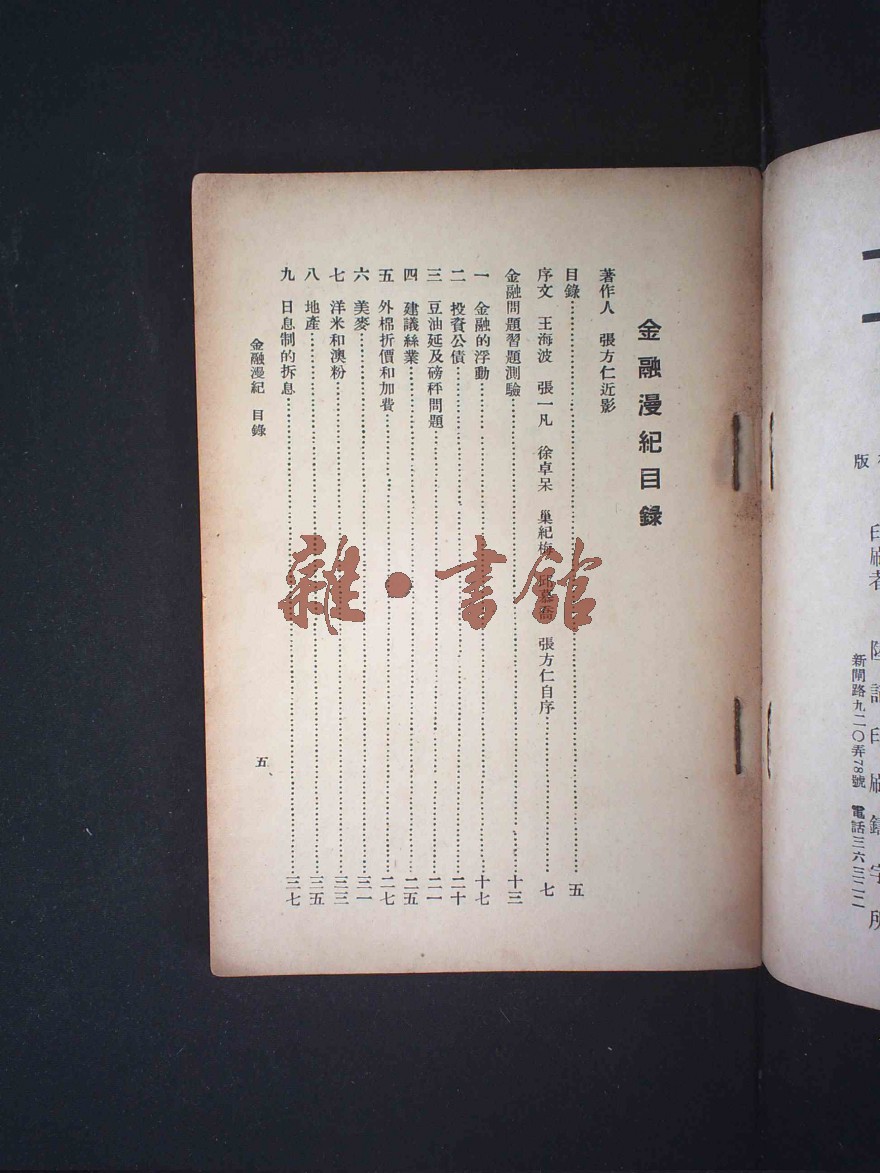 金融漫紀目錄
著作人 張方仁近影
目錄……五
序文 王海波 張一凡 徐卓呆 巢紀梅 邱 張方仁自序……七
金融問題習題測驗……十三
一 金融的浮動……十七
二 投資公債……二十
三 豆油延及磅秤問題……二一
四 建議絲業……二五
五 外棉折價和加費……二七
六 美麥……三一
七 洋米和澳粉……三三
八 地產……三五
九 日息制的拆息……三七
金融漫紀 目錄
五
雜·書館
版
印刷者
印刷鑄字所
新閘路九二〇弄78號 電話三六三二二